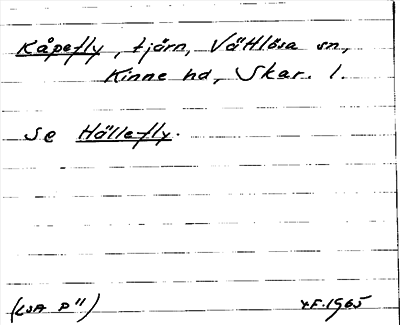 Kåpefly, tjärn, Vättlösa sn,
Kinne hd, Skar. l.
se Hällefly.
(LSA P")
YF.1965